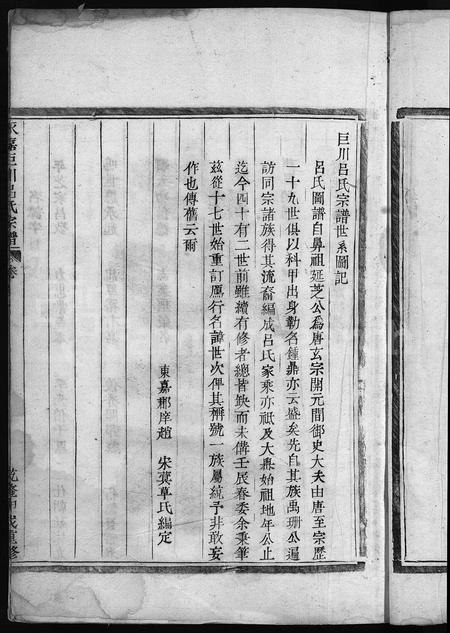 巨川呂氏宗譜世系圖記
呂氏圖譜自鼻祖延芝公爲唐玄宗開元間御史大夫由唐至宗歷
一十九世俱以科甲出身勒名鍾鼎亦云盛矣先自其族禹珊公遍
訪同宗諸族得其流裔編成呂氏家乘亦祇及大鼎始祖地年公止
迄今四十有二世前雖續有修者總皆缺而未備壬辰春委余秉筆
茲從十七世始重訂鴈行名諱世次俾其稱號一族屬統予非敢妄
作也傳舊云爾
東嘉郡庠趙 宋蓂草氏編定
永嘉巨川呂氏宗譜 卷
乾隆甲戌重修